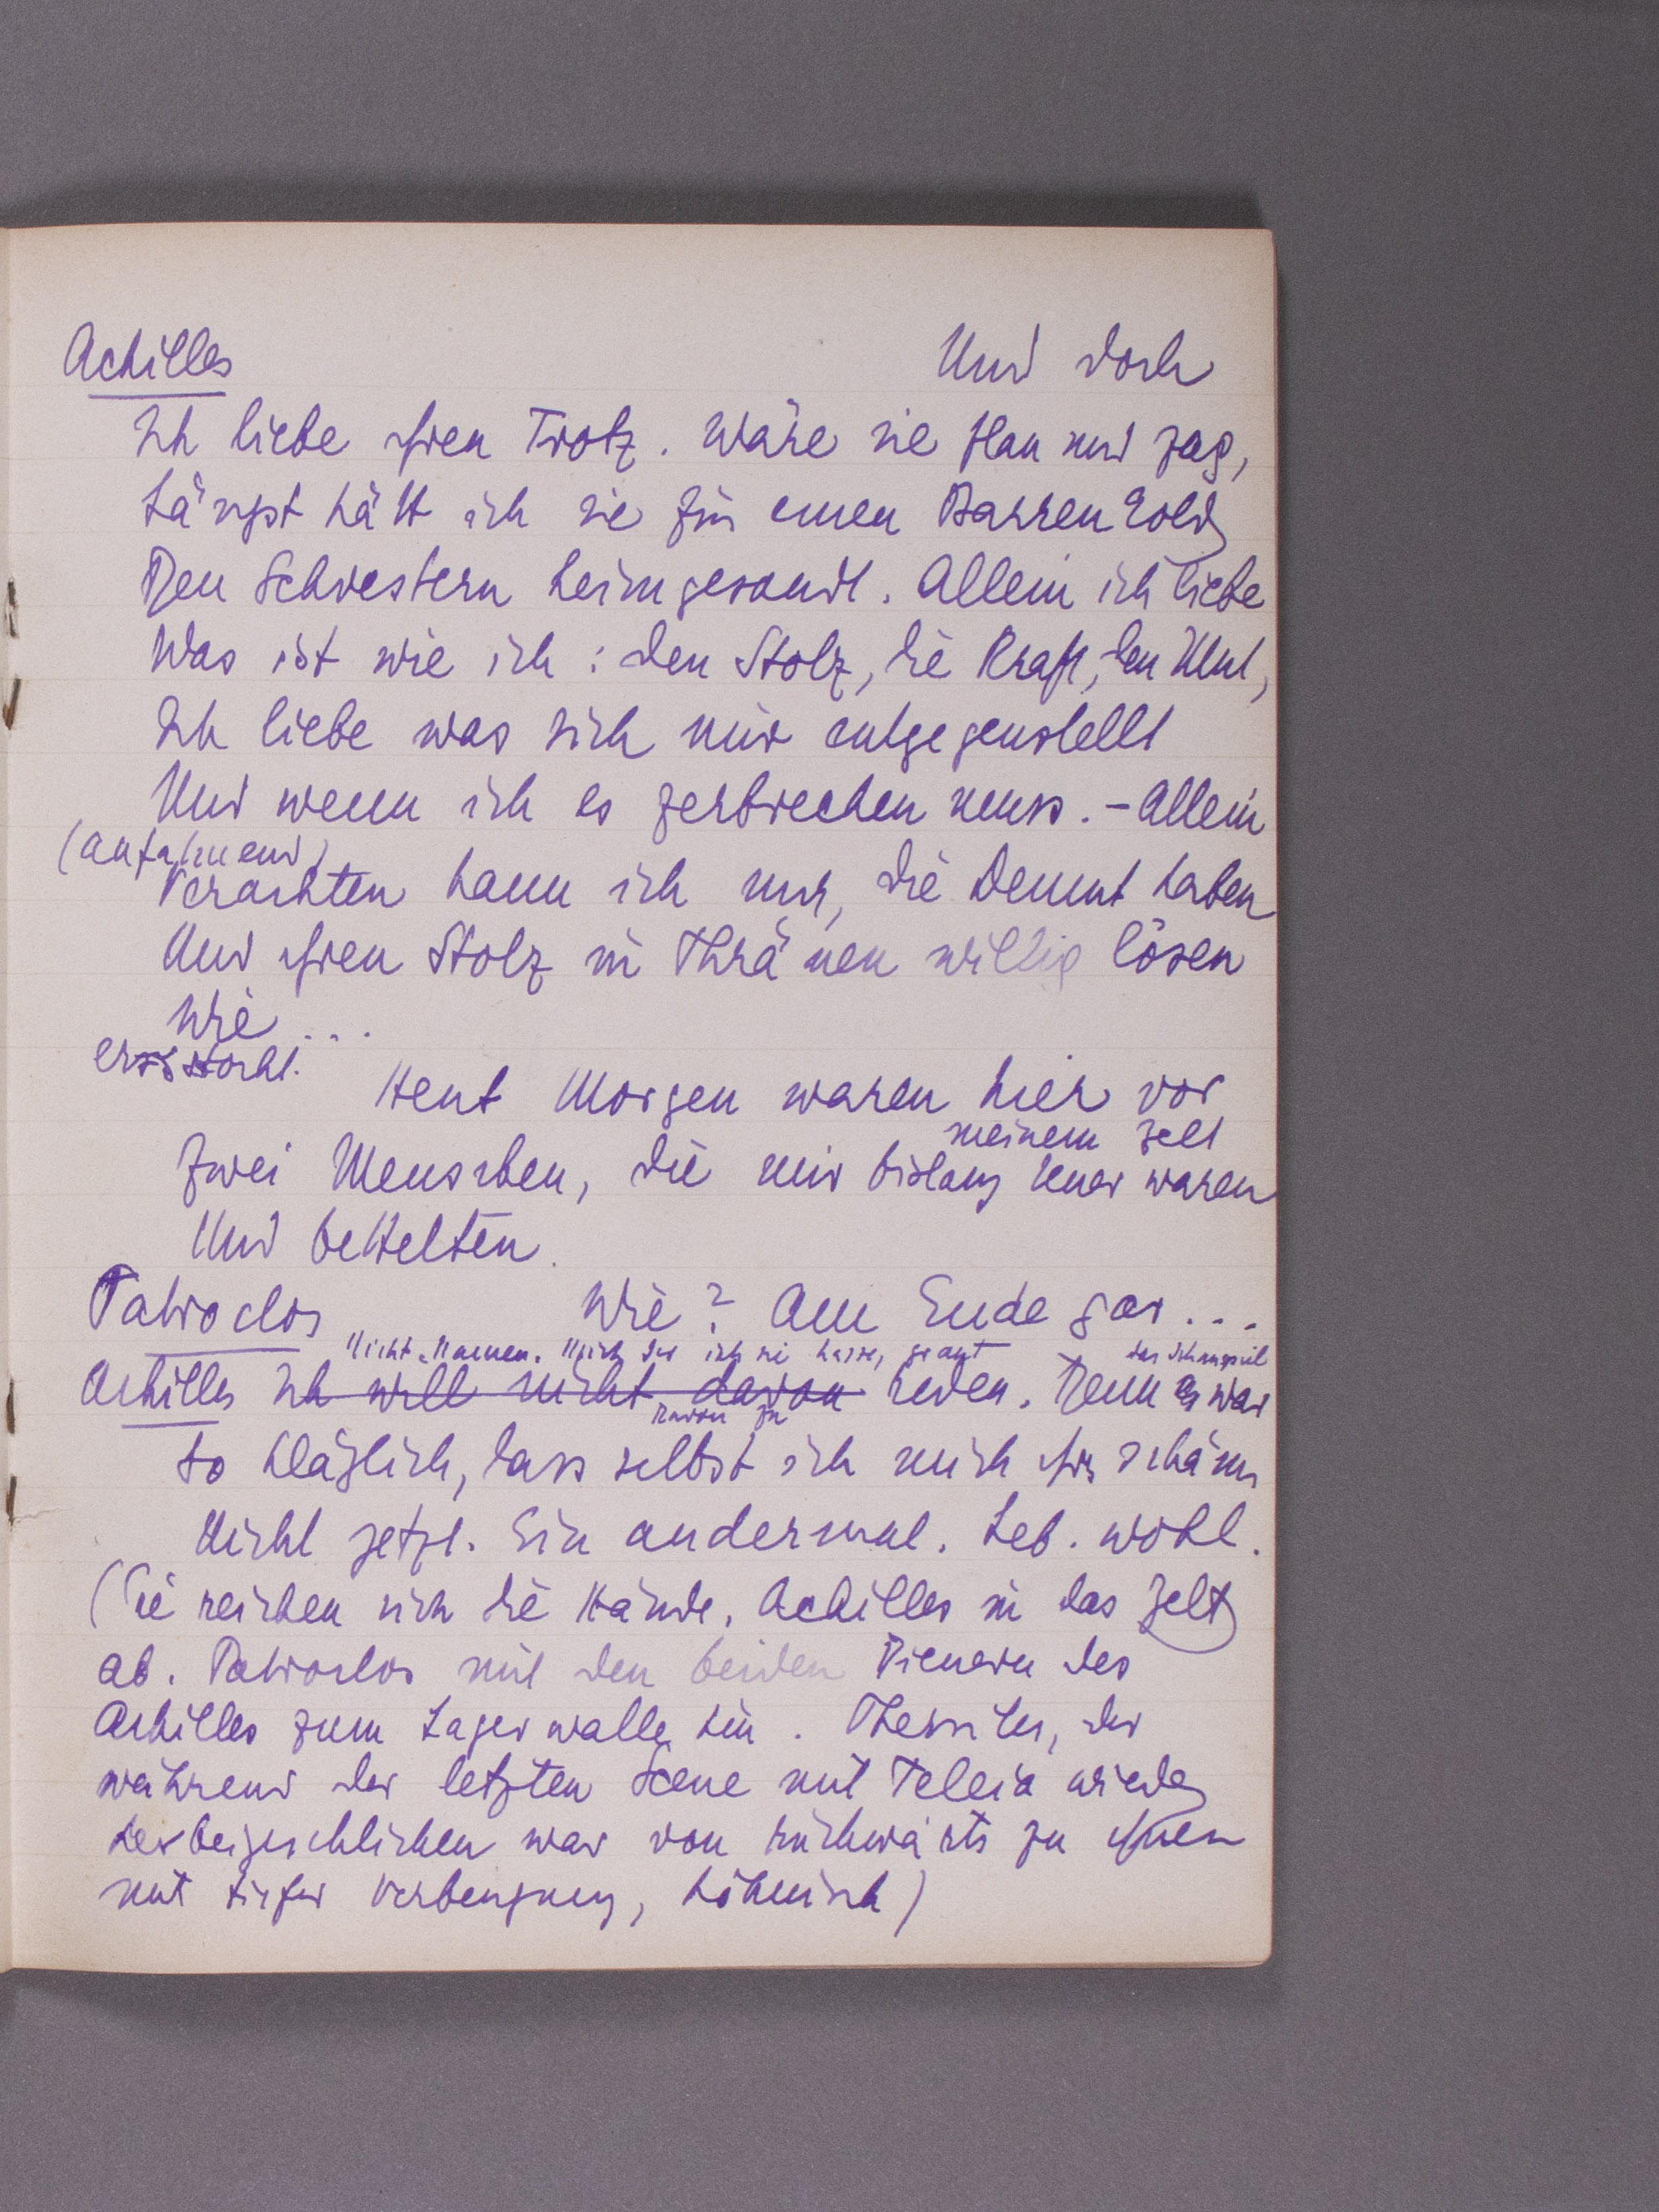 Achilles Und doch
Ich liebe ihren Trotz. Wäre sie flau und zag,
Längst hätt ich sie für einen Barren Gold
Den Schwestern heimgesandt. Allein ich liebe
Was ist wie ich: den Stolz, die Kraft, den Mut,
Ich liebe was sich mir entgegenstellt
Und wenn ich es zerbrechen muss. – Allein
(aufatmend)
Verachten kann ich nur, die Demut haben
Und ihren Stolz in Thränen willig lösen
Wie ...
er stockt.
Heut Morgen waren hier vor
meinem Zelt
Zwei Menschen, die mir bislang teuer waren
Und bettelten.
Patroclos Wie? Am Ende gar ...
Nicht Namen. Mich der ich sie hasse, graut das Schauspiel
Achilles Ich will nicht davon reden. Denn es war
davon zu
So kläglich, dass selbst ich mich ihr schäm
Nicht jetzt. Ein andermal. Leb. wohl.
(Sie reichen sich die Hände. Achilles in das Zelt
ab. Patroclos mit den beiden Dienern des
Achilles zum Lagerwalle hin. Thersites, der
während der letzten Scene mit Teleia wieder
herbeigeschlichen war von rückwärts zu ihnen
mit tiefer Verbeugung, höhnisch)